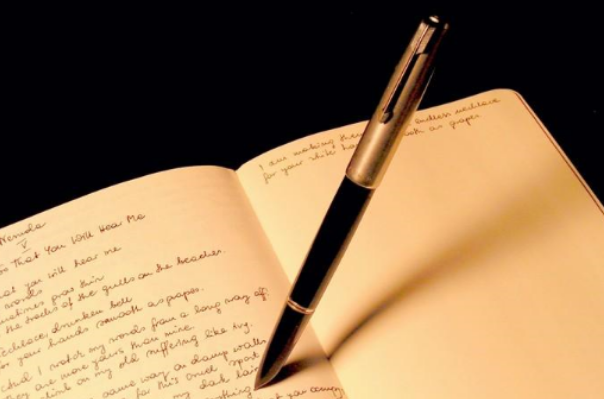 Neruda
V
So That You Will Hear Me
that you will hear me
words
sometimes grow thin
the tracks of the gulls on the beaches.
necklace, drunken bell
for your hands smooth as grapes.
And I watch my words from a long way off.
they are more yours than mine.
climb on my old suffering like ivy.
same way on damp walls
for this cruel sport
my dark lair
I am making them endless necklace
for your white hands as grapes